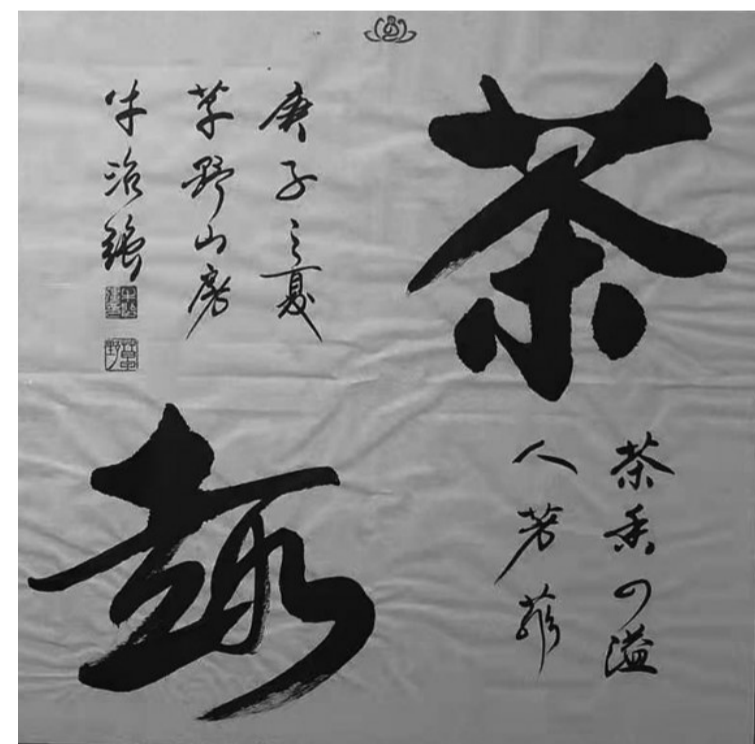 茶
趣
茶香四溢
人芳菲
庚子之夏
草野山房
牛治